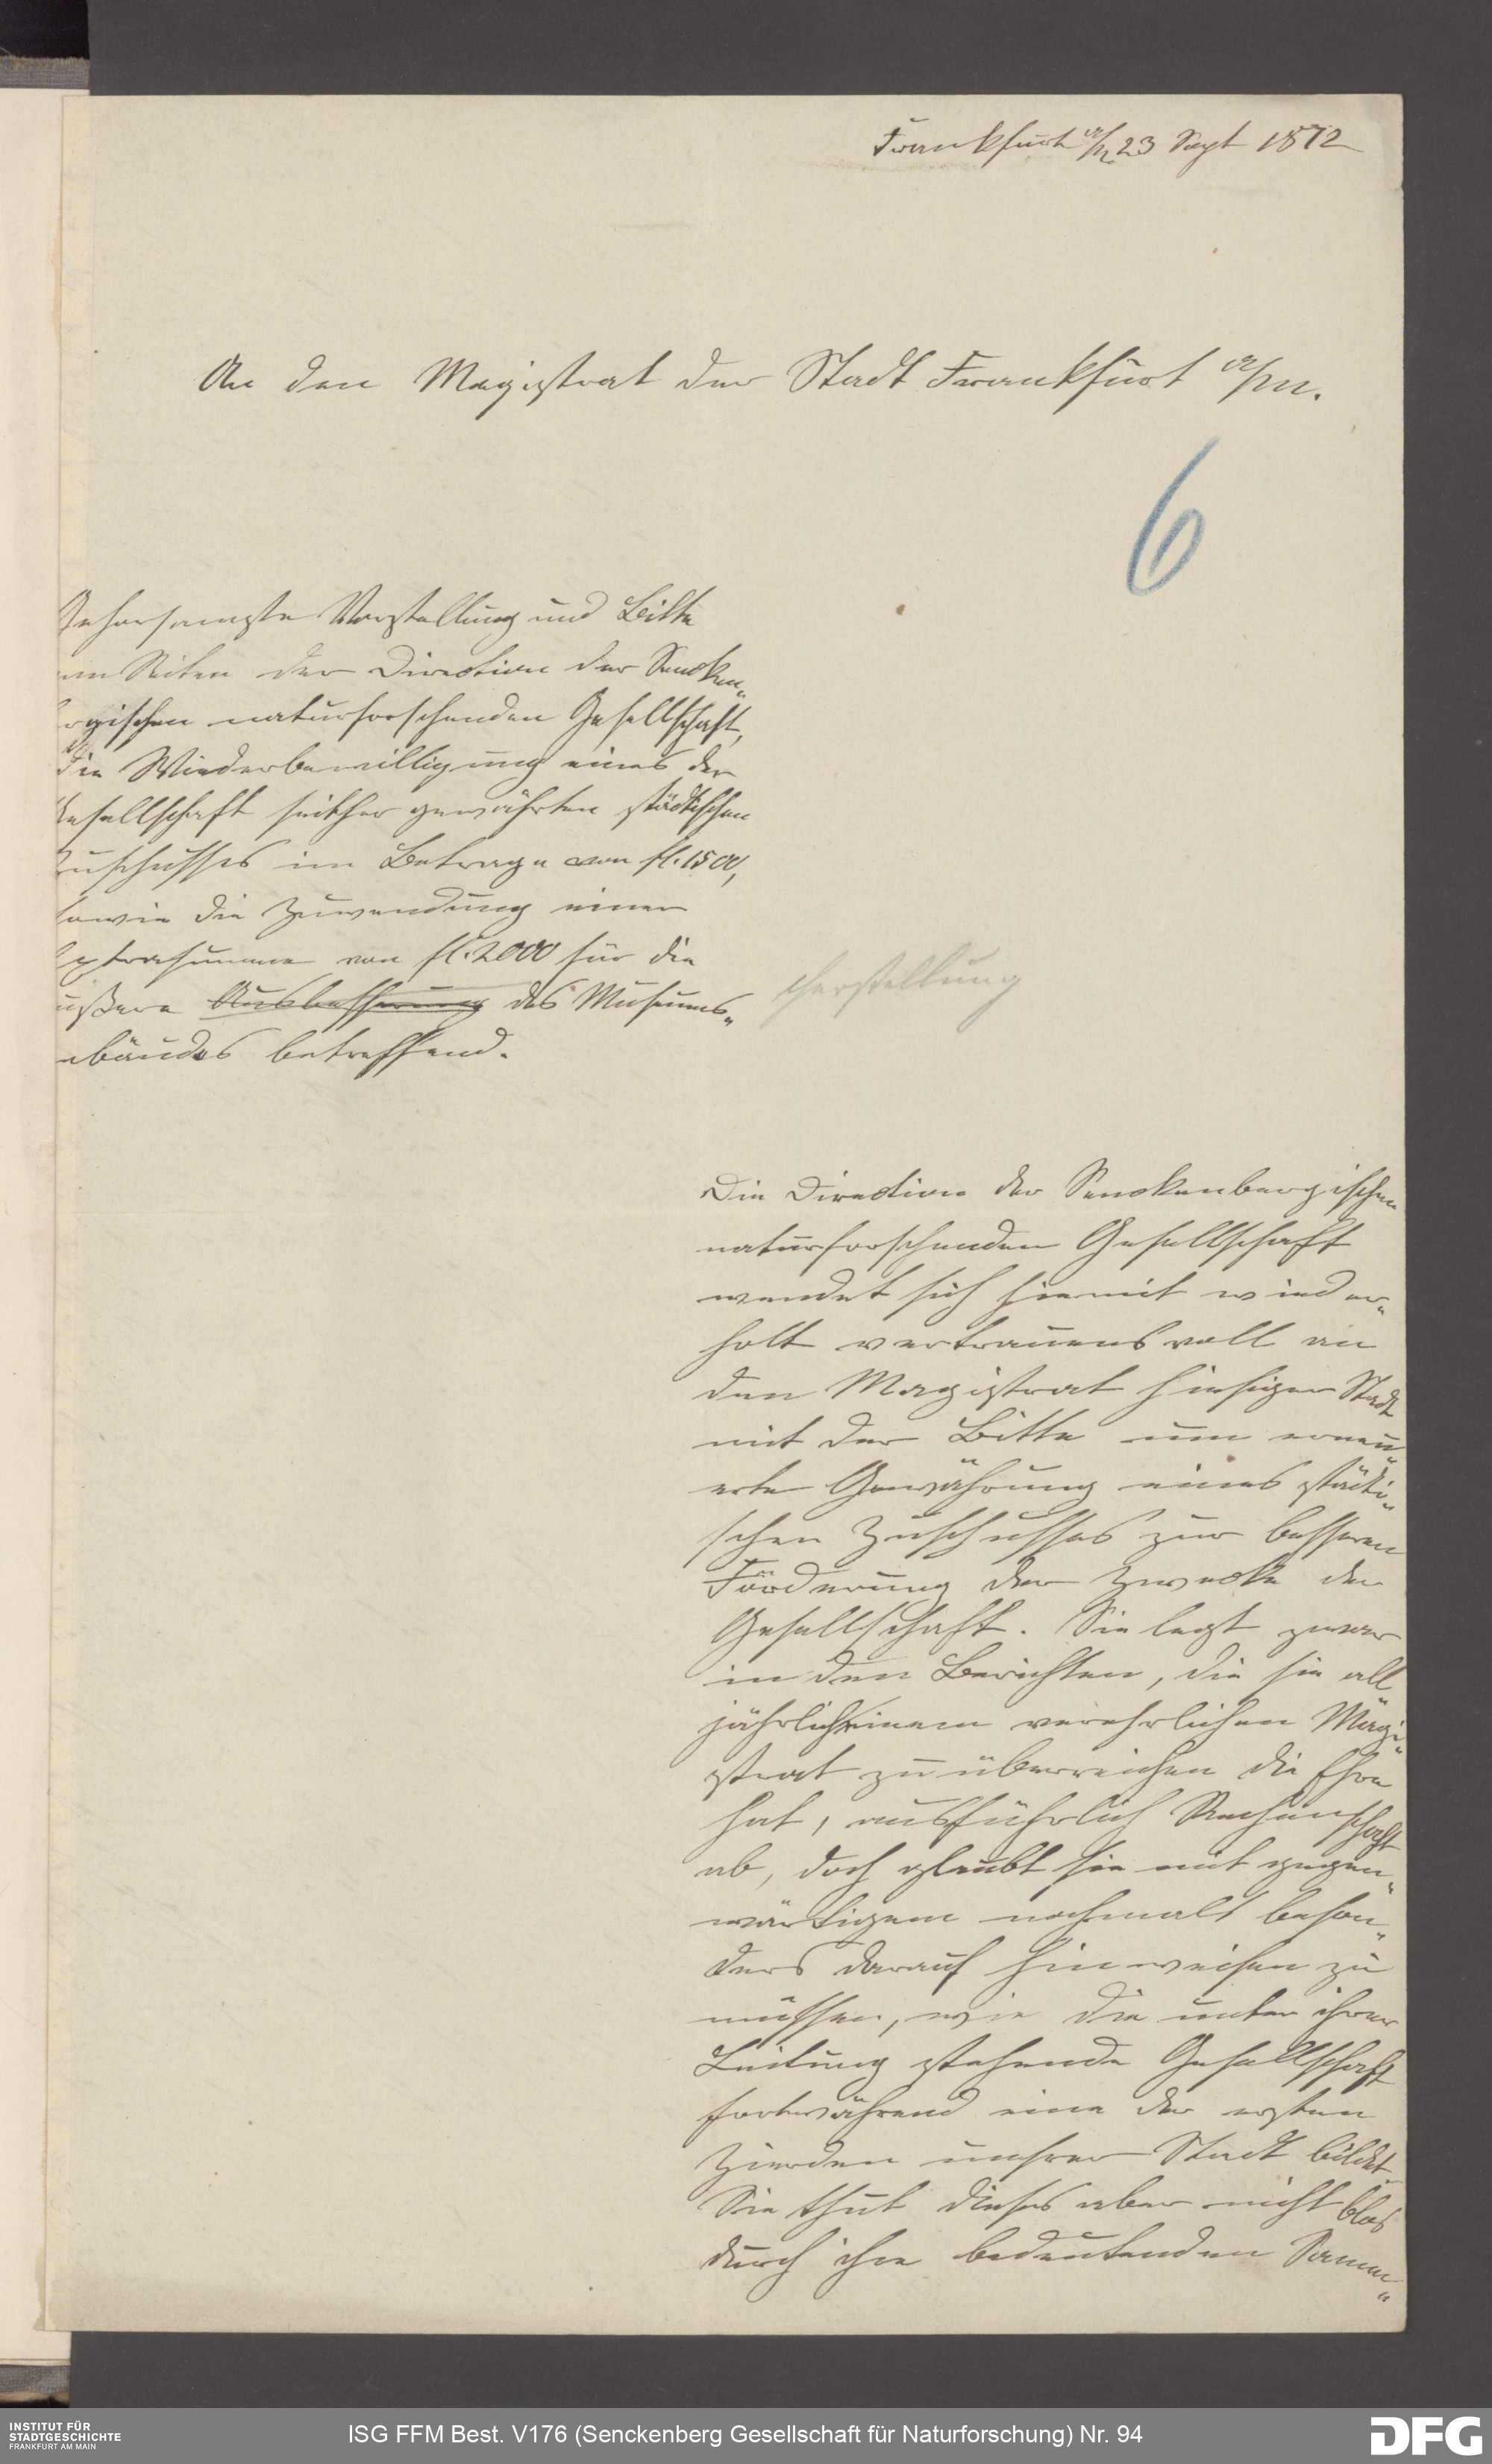 Frankfurt a/M 23 Sept 1872
An den Magistrat der Stadt Frankfurt a/M.
6
Gehorsamste Vorstellung und Bitte
von Seiten der Direction der Sencken„
bergischen naturforschenden Gesellschaft,
die Wiederbewilligung eines der
Gesellschaft seither gewährten städtischen
Zuschusses im Betrage von fl. 1500,
sowie die Zuwendung einer
Extrasumme von fl. 2000 für die
äußere Ausbesserung des Museums„
gebäudes betreffend.
Herstellung
Die Direction der Senckenbergischen
naturforschenden Gesellschaft
wendet sich hiermit wieder„
holt vertrauensvoll an
den Magistrat hiesiger Stadt
mit der Bitte um erneu„
erte Gewährung eines städti„
schen Zuschusses zur besseren
Förderung der Zwecke der
Gesellschaft. Sie legt zwar
in den Berichten, die sie all
jährlich einem verehrlichen Magi„
strat zu überreichen die Ehre
hat, ausführlich Rechenschaft
ab, doch glaubt sie mit gegen„
wärtigem nochmals beson„
ders darauf hinweisen zu
müssen, wie die unter ihrer
Leitung stehende Gesellschaft
fortwährend eine der ersten
Zierden unsrer Stadt bildet.
Sie thut dieses aber nicht blos
durch ihre bedeutenden Samm„
INSTITUT FÜR
STADTGESCHICHTE
FRANKFURT AM MAIN
ISG FFM Best. V176 (Senckenberg Gesellschaft für Naturforschung) Nr. 94
DFG